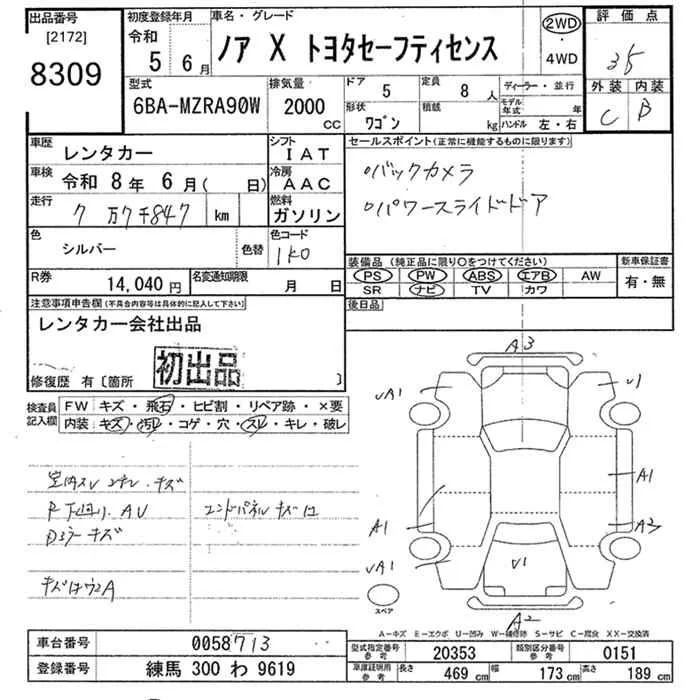 出品番号
[2172]
8309
初度登録年月
令和
5 6月
車名・グレード
ノア X トヨタセーフティセンス
2WD
・
4WD
評価点
3.5
型式
6BA-MZRA90W
排気量
2000
CC
ドア
5
定員
8 人
形状
ワゴン
積載
kg
ディーラー・並行
モデル年式 年
ハンドル 左・右
外装 内装
C B
車歴
レンタカー
シフト
IAT
車検
令和 8年 6月( 日)
冷房
AAC
走行
7万7千847 km
燃料
ガソリン
色
シルバー
色替
色コード
1K0
R券
14,040円
名変通知期限
月 日
セールスポイント(正常に機能するものに限ります)
バックカメラ
パワースライドドア
装備品(純正品に限り○をつけてください)
新車保証書
PS PW ABS エアB AW
SR ナビ TV カワ
有・無
後日品
注意事項申告欄(不具合内容等は具体的に記入して下さい)
レンタカー会社出品
初出品
修復歴 有〔箇所 〕
検査員
記入欄
FW キズ・飛石・ヒビ割・リペア跡・×要
内装 キズ・汚レ・コゲ・穴・スレ・キレ・破レ
キズ
エンドパネル キズ
A3
A1
U1
A1
A1
A3
A1
U1
A2
スペア
A-キズ E-エクボ U-凹み W-補修跡 S-サビ C-腐食 XX-交換済
車台番号
0058713
登録番号
練馬 300 わ 9619
型式指定番号
参考
20353
類別区分番号
参考
0151
車庫証明用
参考
長さ
469 cm
幅
173 cm
高さ
189 cm